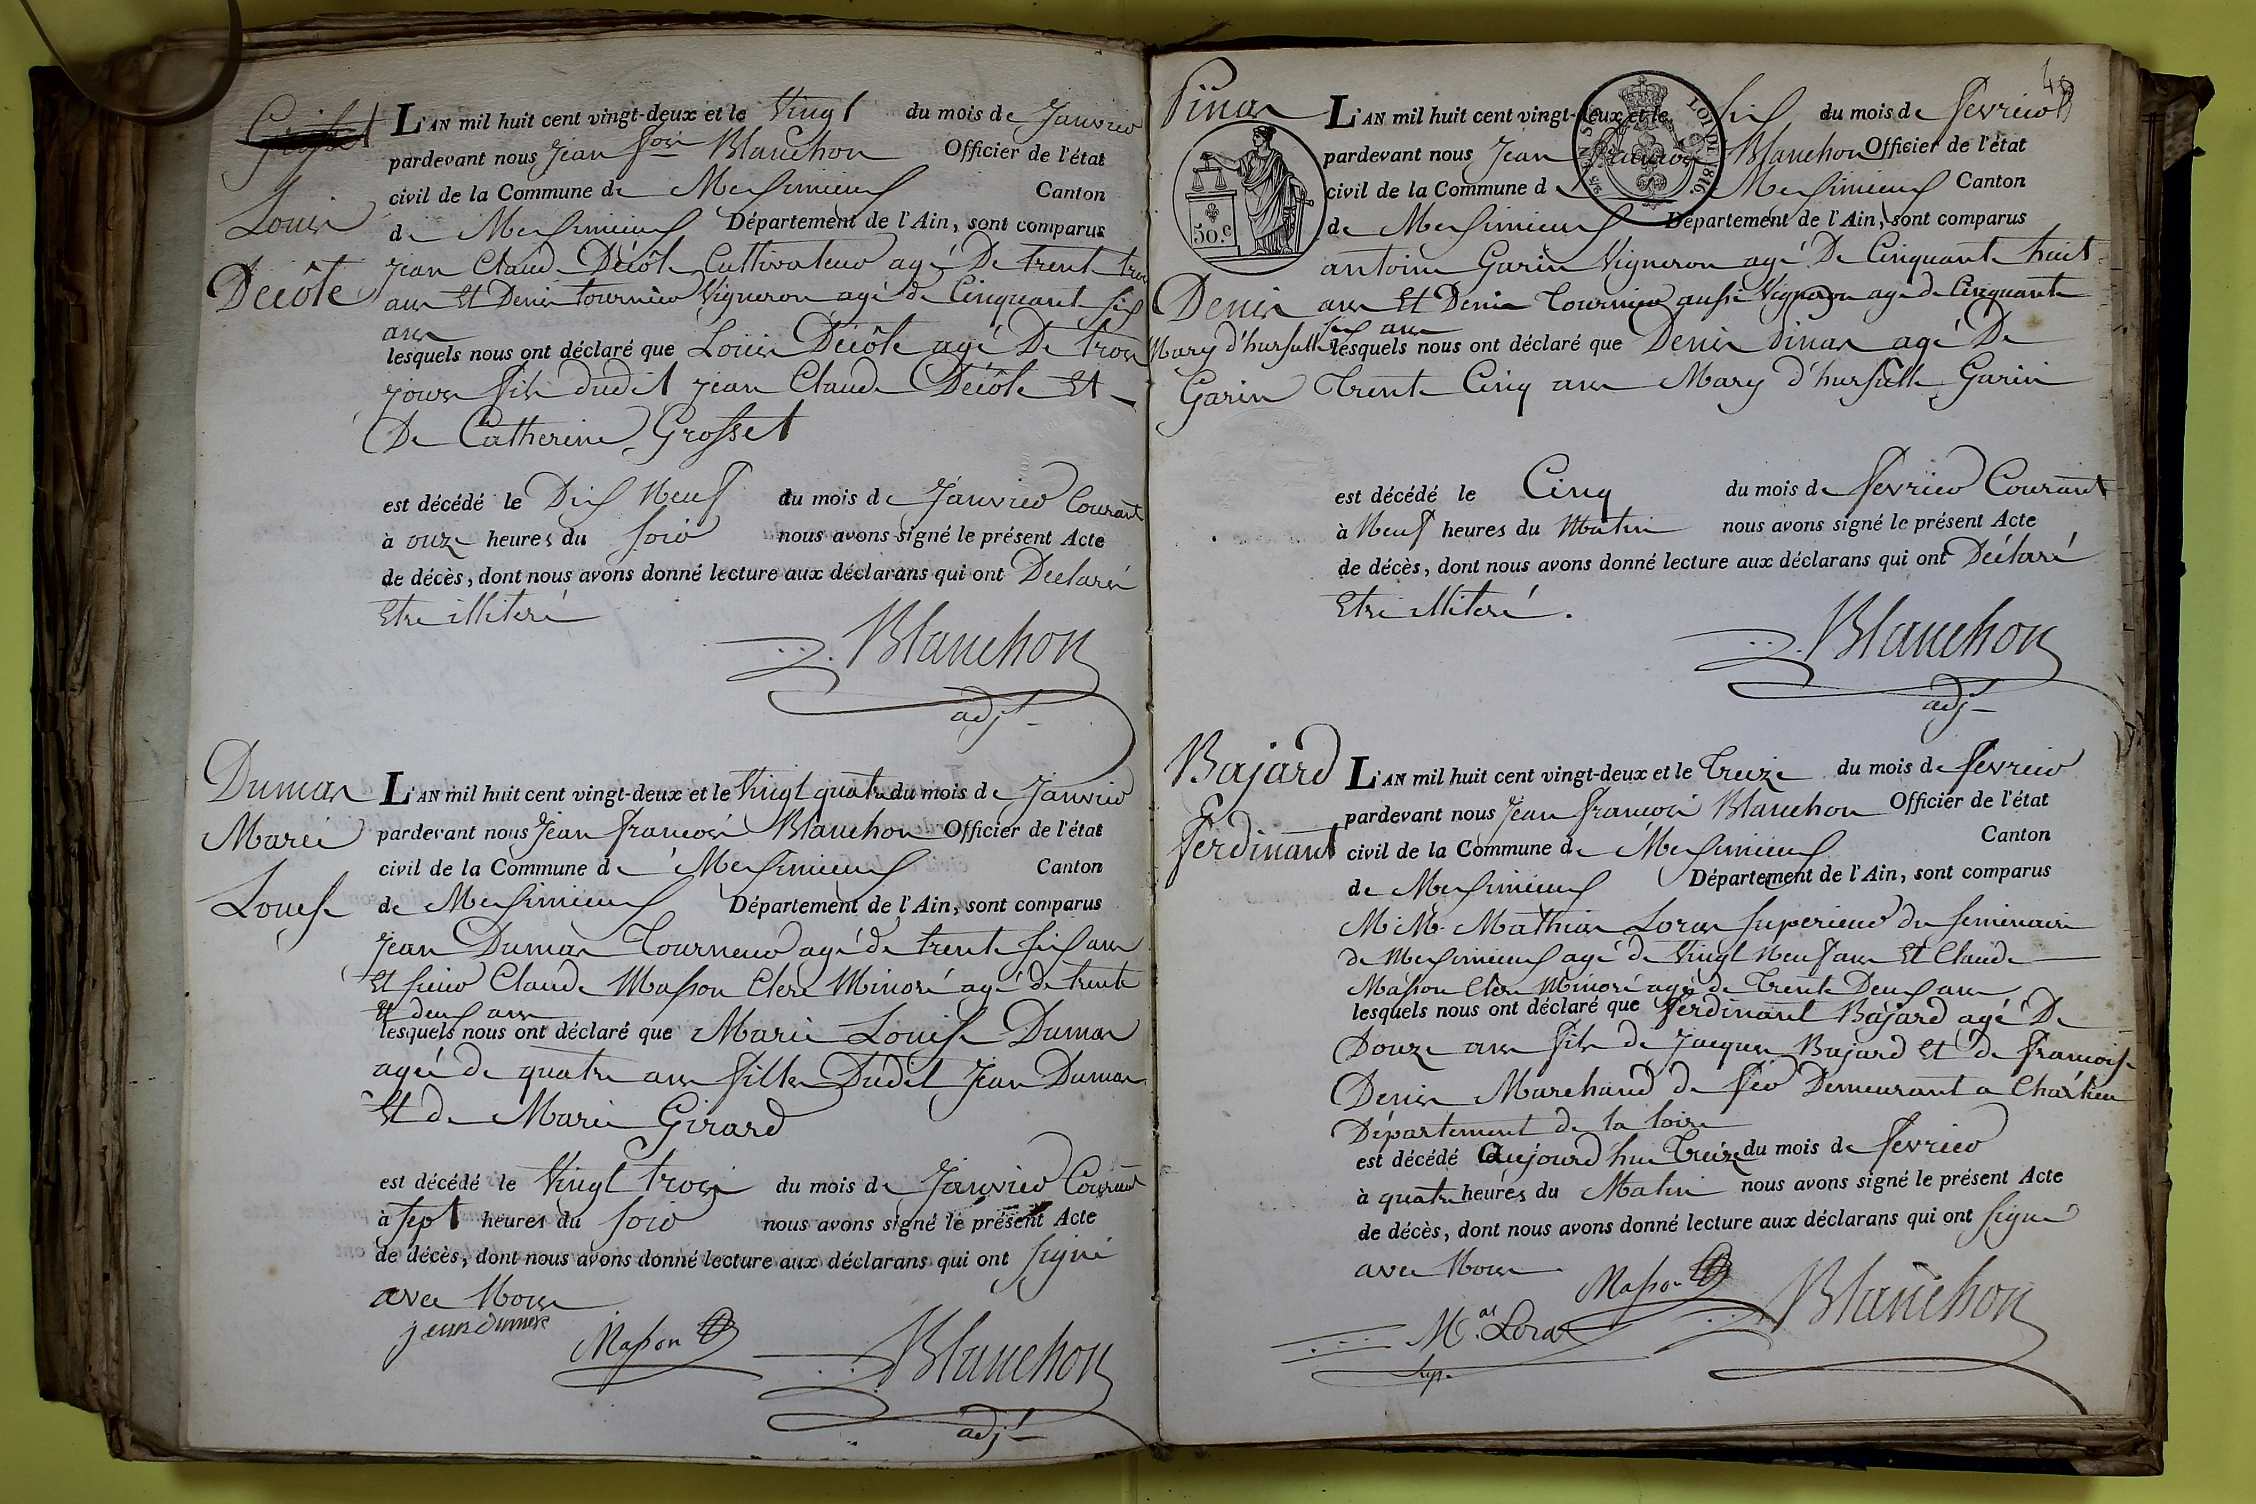 Louis
Décôte
L'AN mil huit cent vingt-deux et le Vingt du mois de Janvier
pardevant nous Jean fois Blanchon Officier de l'état
civil de la Commune de Meximieux Canton
de Meximieux Département de l'Ain, sont comparus
Jean Claude Décôte Cultivateur agé De trente trois
ans Et Denis tournier Vigneron agé de Cinquante six
ans
lesquels nous ont déclaré que Louis Décôte agé De trois
jours fils dudit jean Claude Décôte Et
De Catherine Grosset
est décédé le Dix Neuf du mois de Janvier Courant
à onze heures du soir nous avons signé le présent Acte
de décès, dont nous avons donné lecture aux déclarans qui ont Declaré
Etre illiteré
Blanchon
adjt
Dumas
Marie
Louise
L'AN mil huit cent vingt-deux et le Vingt quatre du mois de Janvier
pardevant nous Jean francois Blanchon Officier de l'état
civil de la Commune de Meximieux Canton
de Meximieux Département de l'Ain, sont comparus
Jean Dumas Tourneur agé de trente six ans
Et sieur Claude Masson Clerc Minoré agé de trente
et deux ans
lesquels nous ont déclaré que Marie Louise Dumas
agée de quatre ans fille Dudit Jean Dumas
Et de Marie Girard
est décédé le Vingt trois du mois de Janvier Courant
à sept heures du soir nous avons signé le présent Acte
de décès, dont nous avons donné lecture aux déclarans qui ont signé
avec Nous
jean dumas
Masson
Blanchon
adjt
50.c
LOI DE 1816.
Denis
Mary d'hursulle
Garin
L'AN mil huit cent vingt-deux et le six du mois de fevrier
pardevant nous Jean francois Blanchon Officier de l'état
civil de la Commune de Meximieux Canton
de Meximieux Département de l'Ain, sont comparus
antoine Garin Vigneron agé De Cinquante huit
ans Et Denis Tournier aussi Vigneron agé de Cinquante
six ans
lesquels nous ont déclaré que Denis dinas agé De
Trente Cinq ans Mary d'hursulle Garin
est décédé le Cinq du mois de fevrier Courant
à Neuf heures du Matin nous avons signé le présent Acte
de décès, dont nous avons donné lecture aux déclarans qui ont Déclaré
Etre illiteré.
Blanchon
adjt
Bajard
ferdinant
L'AN mil huit cent vingt-deux et le Treize du mois de fevrier
pardevant nous Jean francois Blanchon Officier de l'état
civil de la Commune de Meximieux Canton
de Meximieux Département de l'Ain, sont comparus
M M. Mathias Loras superieur du seminaire
de Meximieux agé de Vingt Neuf ans Et Claude
Masson Clerc Minoré agé de Trente Deux ans
lesquels nous ont déclaré que ferdinant Bajard agé De
Douze ans fils de Jacques Bajard Et de francoise
Denis Marchand de fer Demeurant a Charlieu
Département de la loire
est décédé aujourd'hui Treize du mois de fevrier
à quatre heures du Matin nous avons signé le présent Acte
de décès, dont nous avons donné lecture aux déclarans qui ont signé
avec Nous
Masson
Blanchon
M.as Loras
sup.